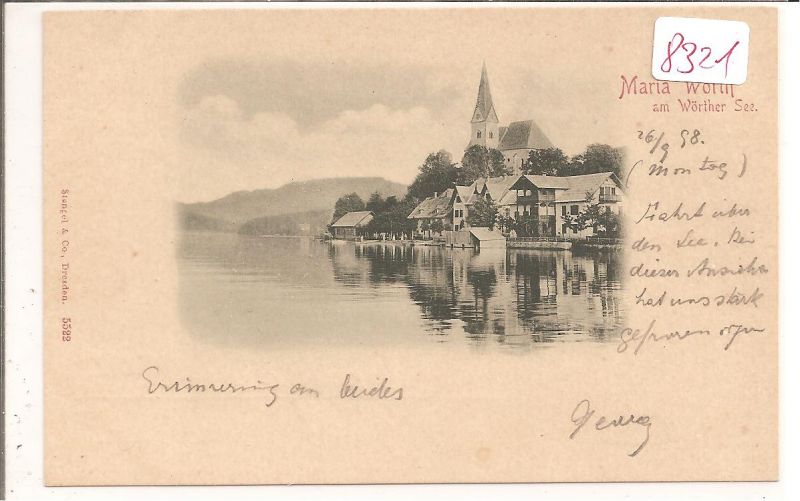 8321
Maria Wörth
am Wörther See.
26/9 98.
(Montag)
Fahrt über
den See. Bei
dieser Ansicht
hat uns stark
gefroren
Stengel & Co., Dresden. 5522
Erinnerung an beides
Georg